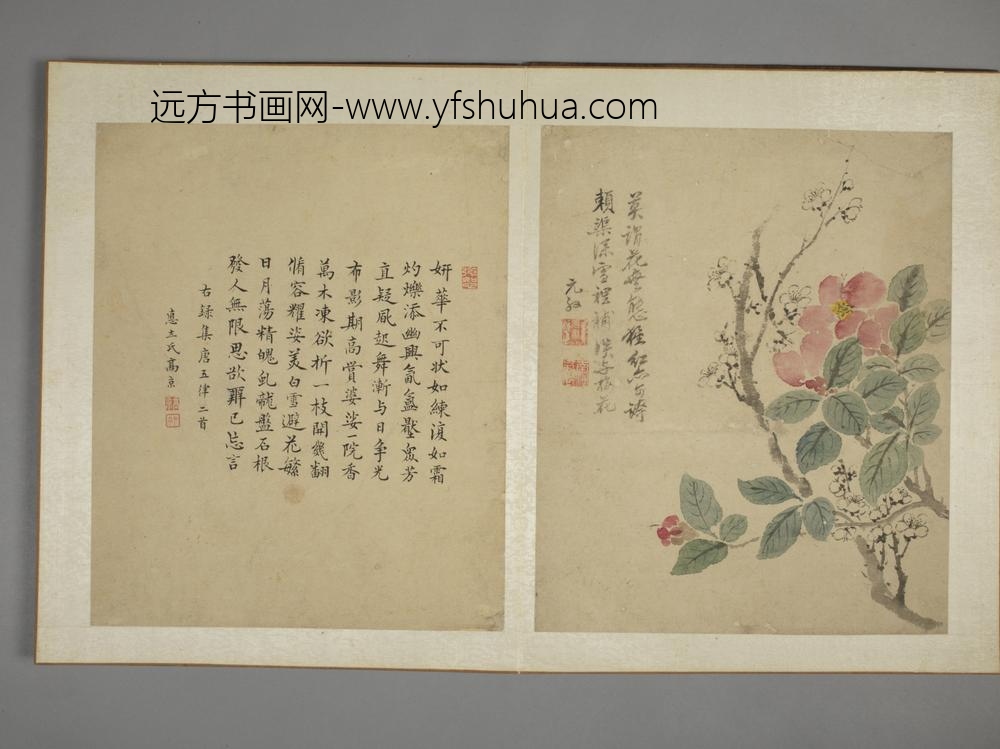 远方书画网-www.yfshuhua.com
莫謂花無態猩紅可誇
賴渠深雪裡補梅花
妍華不可状如練復如霜
灼爍添幽興氤氳壓眾芳
宜疑風起舞漸与日争光
布影期高賞婆娑一院香
萬木凍欲折一枝開幾翻
脩容耀姿美白雪避花繁
日月蕩精魄虬龍盤石根
發人無限思欲辨已忘言
右録集唐五律二首
士氏高京